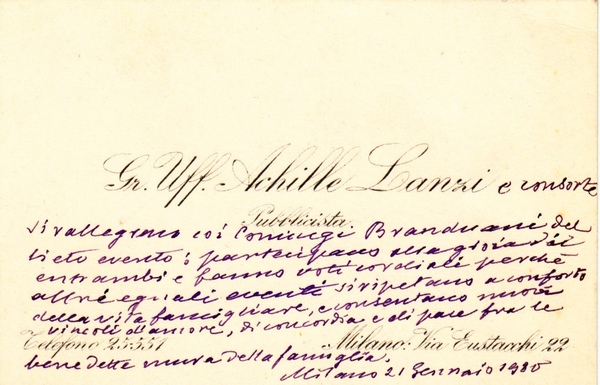 Gr. Uff. Achille Lanzi e consorte
Pubblicista
si rallegrano coi Coniugi Branduani del
lieto evento; partecipano alla gioia di
entrambi e fanno voti cordiali perchè
altri eguali eventi si ripetano a conforto
della vita famigliare, e consentano nuovi
vincoli d'amore, di concordia e di pace fra le
Telefono 25551 Milano: Via Eustacchi 22
benedette mura della famiglia.
Milano 21 Gennaio